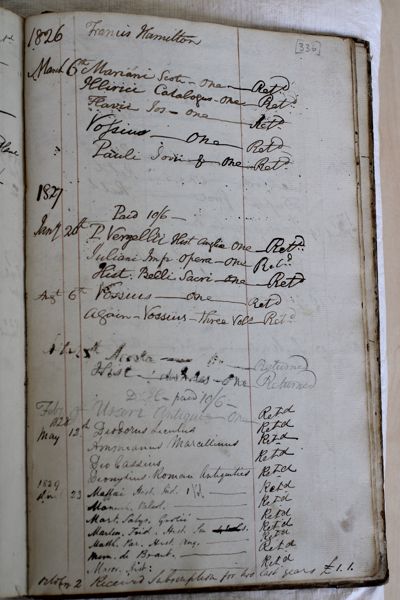 1826 Francis Hamilton
[336]
March 6th Mariani Scoti - one - Retd
Illirici Catalogus - one Retd
Flavii Jos - one Retd
Vossius - one Retd
Pauli Jovii - one Retd
1827
Paid 10/6 -
Jany 20th P. Vergilii Hist Angliæ One - Retd
Juliani Imp Opera - One Retd
Hist. Belli Sacri - one Retd
6th Vossius - one Retd
Again - Vossius - three Vols Retd
Returned
Hist - One Returned
paid 10/6 -
Feby Antiqui - One Retd
1828
May 13th Diodorus Siculus Retd
Ammianus Marcellinus Retd
Dio Cassius Retd
Dionysius Roman Antiquities Retd
1829
23 Maffai Hist. Ind. Retd
Retd
Mart. Retd
Retd
Math. Par. Hist Ang. Retd
Mem. de Retd
October 2 Received Subscription for two last years £1.1.